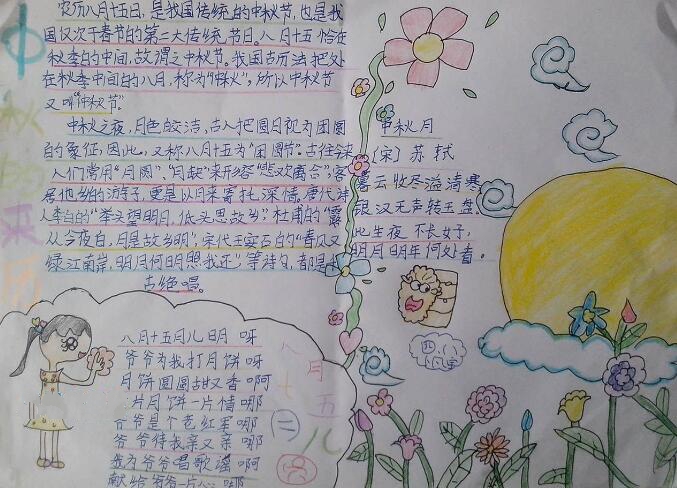 中秋的来历
农历八月十五日,是我国传统的中秋节,也是我
国仅次于春节的第二大传统节日。八月十五恰在
秋季的中间,故谓之中秋节。我国古历法把处
在秋季中间的八月,称为"仲秋",所以中秋节
又叫"仲秋节"。
中秋之夜,月色皎洁,古人把圆月视为团圆
的象征,因此,又称八月十五为"团圆节"。古往今来
人们常用"月圆"、"月缺"来形容"悲欢离合",客
居他乡的游子,更是以月来寄托深情。唐代诗
人李白的"举头望明月,低头思故乡";杜甫的"露
从今夜白,月是故乡明";宋代王安石的"春风又
绿江南岸,明月何时照我还";等诗句,都是
古绝唱。
中秋月
〔宋〕苏轼
暮云收尽溢清寒
银汉无声转玉盘
此生夜不长好,
明月明年何处看。
八月十五月儿明呀
爷爷为我打月饼呀
月饼圆圆甜又香啊
片月饼一片情哪
爷爷是个老红军哪
爷爷待我亲又亲哪
我为爷爷唱歌谣啊
献给爷爷一片心哪
八月十五儿
四、(二)